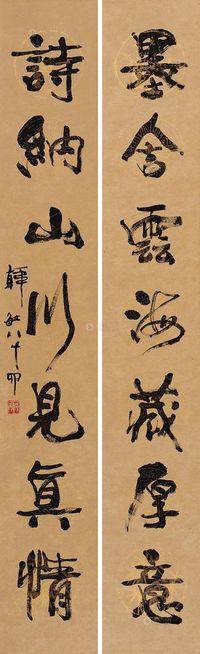 墨含雲海藏厚意
詩納山川見眞情
韓敏八十叩